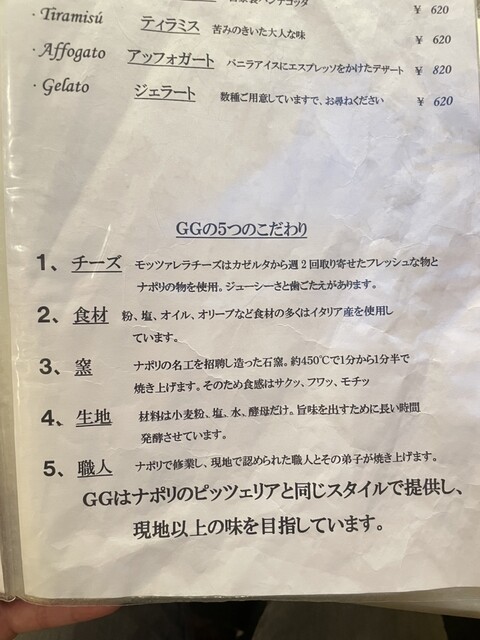 自家製パンナコッタ ￥ 620
・Tiramisú ティラミス 苦みのきいた大人な味 ￥ 620
・Affogato アッフォガート バニラアイスにエスプレッソをかけたデザート ￥ 820
・Gelato ジェラート 数種ご用意していますで、お尋ねください ￥ 620
GGの5つのこだわり
1、チーズ モッツァレラチーズはカゼルタから週２回取り寄せたフレッシュな物と
ナポリの物を使用。ジューシーさと歯ごたえがあります。
2、食材 粉、塩、オイル、オリーブなど食材の多くはイタリア産を使用し
ています。
3、窯 ナポリの名工を招聘し造った石窯。約450℃で1分から1分半で
焼き上げます。そのため食感はサクッ、フワッ、モチッ
4、生地 材料は小麦粉、塩、水、酵母だけ。旨味を出すために長い時間
発酵させています。
5、職人 ナポリで修業し、現地で認められた職人とその弟子が焼き上げます。
GGはナポリのピッツェリアと同じスタイルで提供し、
現地以上の味を目指しています。